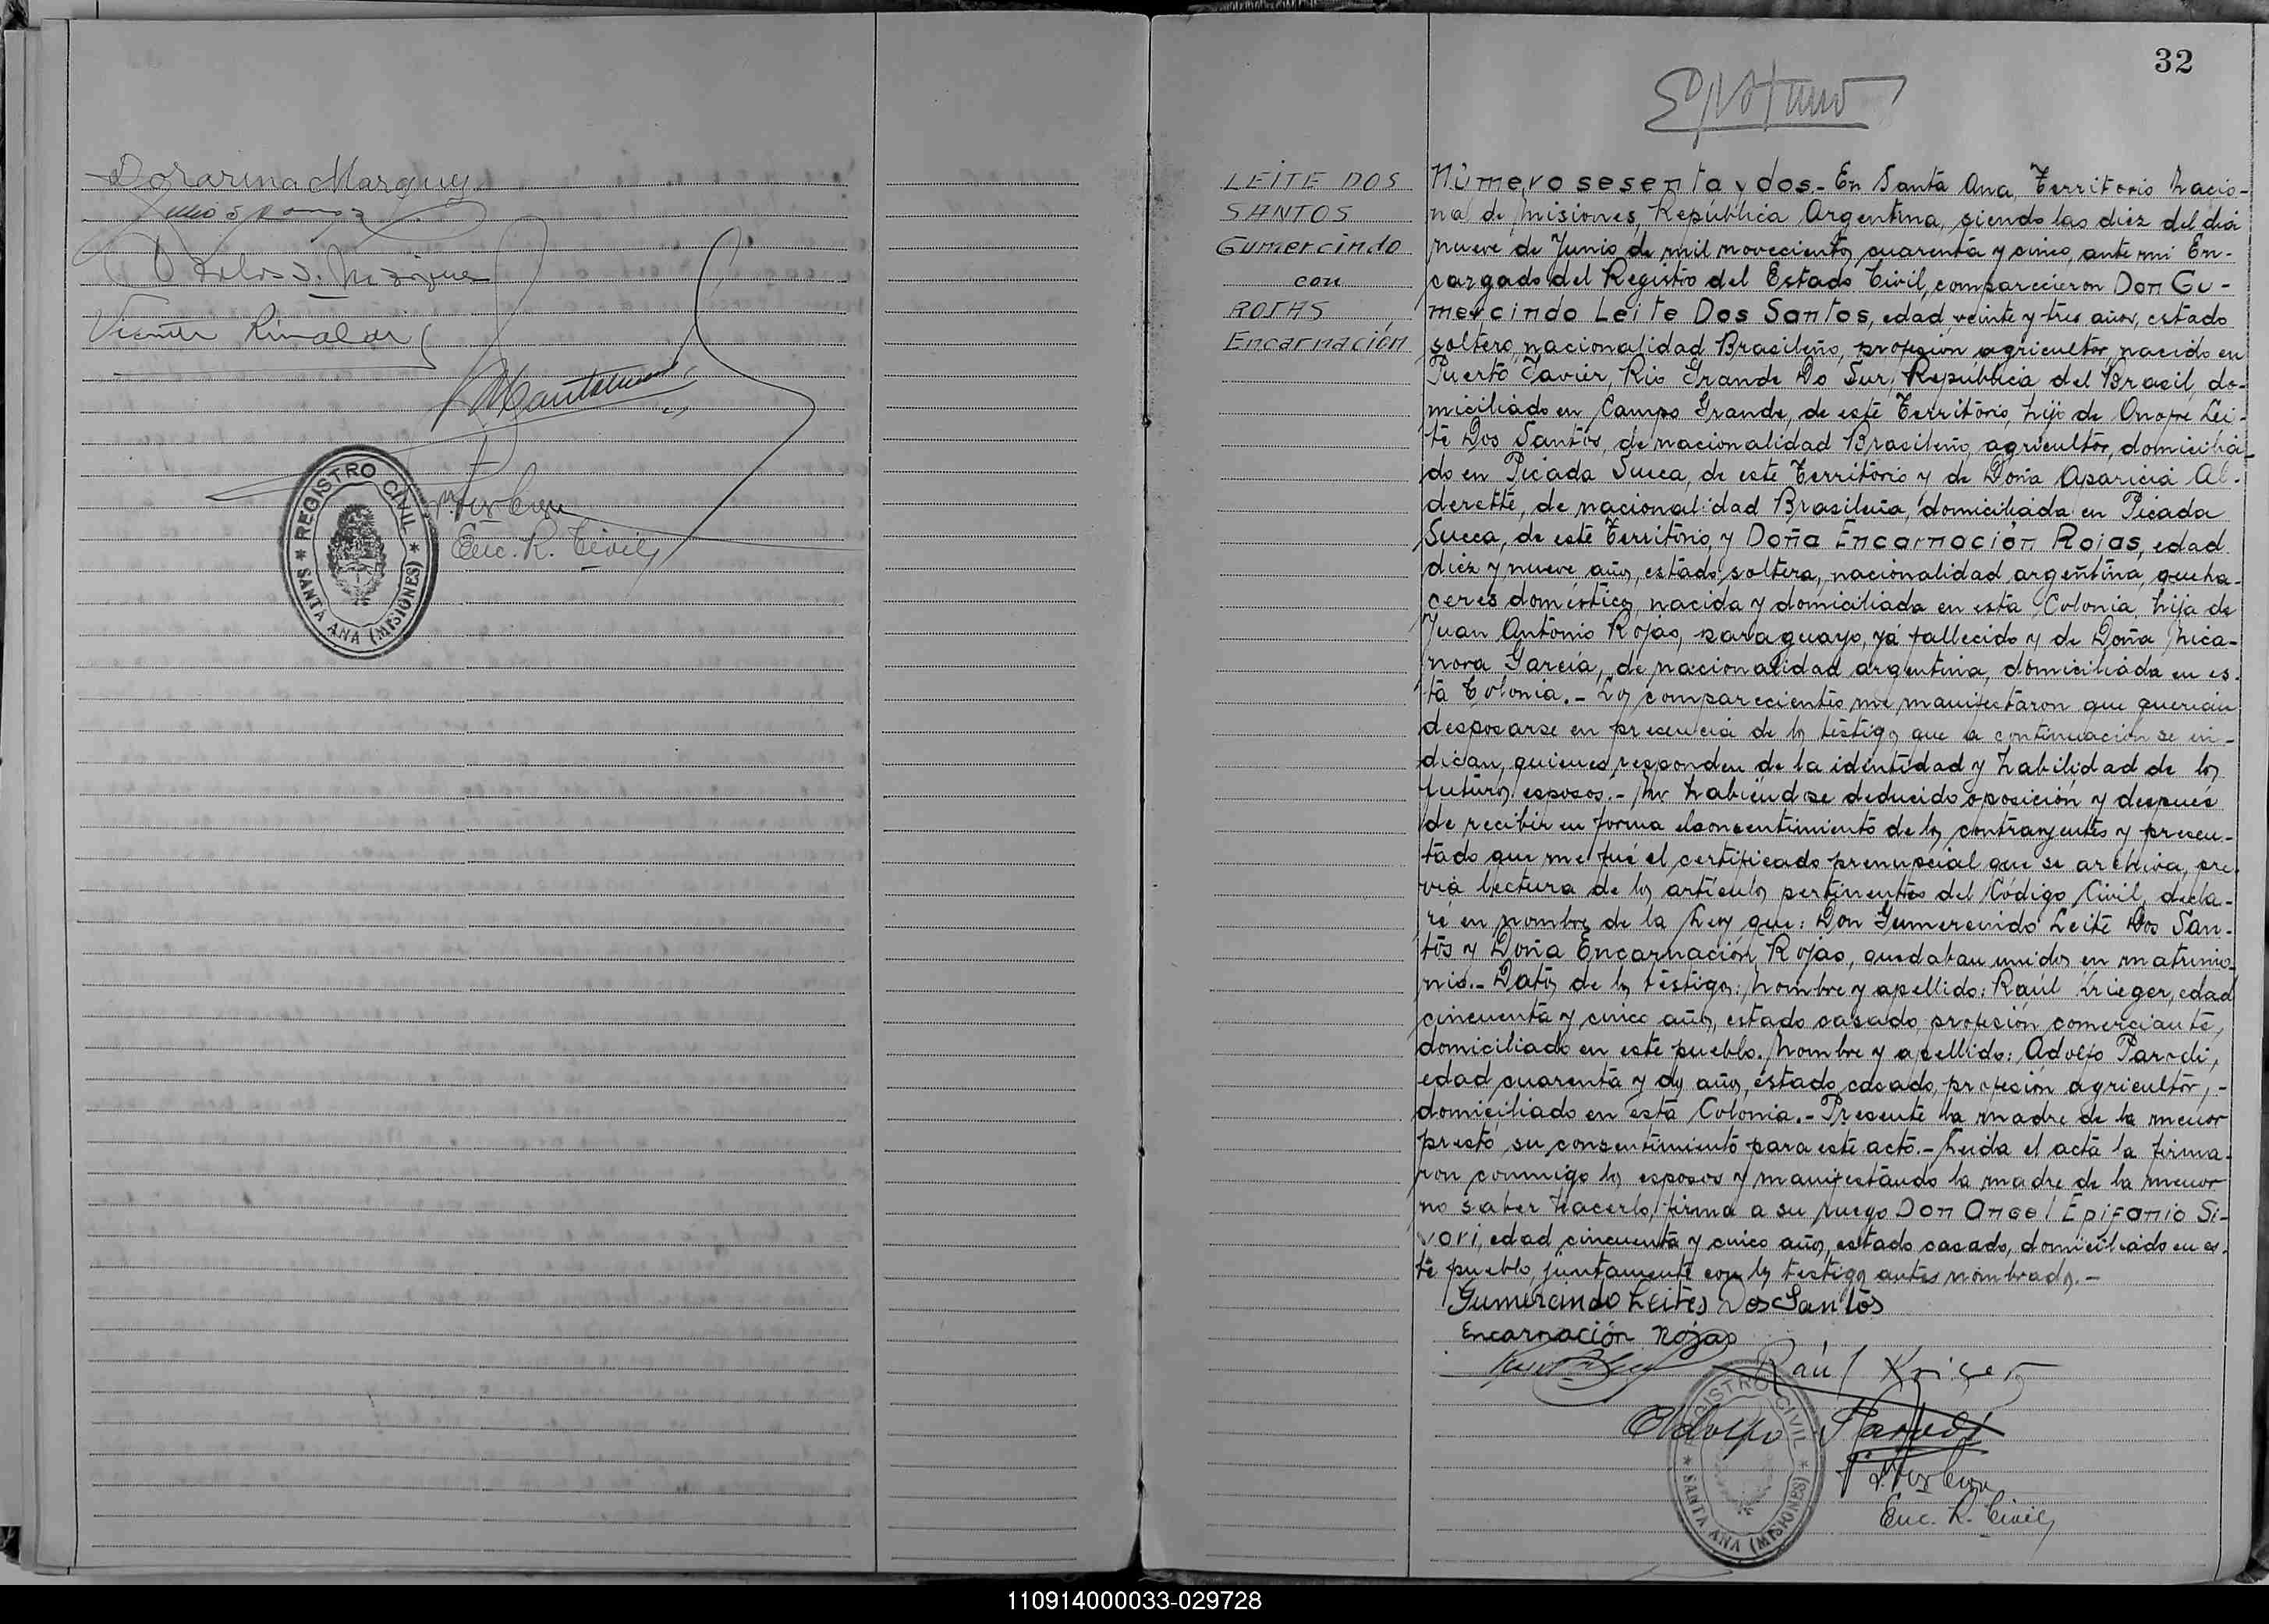 Dorarina Marquez
Vicente Rinaldi
REGISTRO CIVIL
SANTA ANA (MISIONES)
Enc. R. Civil
32
LEITE DOS
SANTOS
Gumercindo
con
ROJAS
Encarnación
Número sesenta y dos.- En Santa Ana, Territorio Nacio-
nal de Misiones, República Argentina, siendo las diez del dia
nueve de Junio de mil novecientos cuarenta y cinco, ante mi En-
cargado del Registro del Estado Civil, comparecieron Don Gu-
mercindo Leite Dos Santos, edad veinte y tres años, estado
soltero, nacionalidad Brasileño, profesion agricultor, nacido en
Puerto Javier, Rio Grande Do Sur, República del Brasil, do-
miciliado en Campo Grande, de este Territorio, hijo de Onofre Lei-
te Dos Santos, de nacionalidad Brasileño, agricultor, domicilia-
do en Picada Sueca, de este Territorio y de Doña Aparicia Al-
derette, de nacionalidad Brasileña, domiciliada en Picada
Sueca, de este Territorio, y Doña Encarnación Rojas, edad
diez y nueve años, estado soltera, nacionalidad argentina, queha-
ceres domésticos, nacida y domiciliada en esta Colonia, hija de
Juan Antonio Rojas, paraguayo, ya fallecido y de Doña Nica-
nora García, de nacionalidad argentina, domiciliada en es-
ta Colonia.- Los comparecientes me manifestaron que querian
desposarse en presencia de los testigos que a continuación se in-
dican, quienes responden de la identidad y habilidad de los
futuros esposos.- No habiendose deducido oposición y después
de recibir en forma el consentimiento de los contrayentes y presen-
tado que me fué el certificado prenupcial que se archiva, pre-
via lectura de los artículos pertinentes del Código Civil, decla-
ré en nombre de la Ley que: Don Gumercindo Leite Dos San-
tos y Doña Encarnación Rojas, quedaban unidos en matrimo-
nio.- Datos de los testigos: Nombre y apellido: Raúl Krieger, edad
cincuenta y cinco años, estado casado, profesión comerciante,
domiciliado en este pueblo. Nombre y apellido: Adolfo Parodi,
edad cuarenta y dos años, estado casado, profesión agricultor, -
domiciliado en esta Colonia.- Presente la madre de la menor
prestó su consentimiento para este acto.- Leida el acta la firma-
ron conmigo los esposos y manifestando la madre de la menor
no saber hacerlo, firma a su ruego Don Angel Epifanio Si-
vori, edad cincuenta y cinco años, estado casado, domiciliado en es-
te pueblo, juntamente con los testigos antes nombrados.-
Gumercindo Leites Dos Santos
Encarnación Rojas
Raúl Krieger
Adolfo Parodi
REGISTRO CIVIL
SANTA ANA (MISIONES)
Enc. R. Civil
110914000033-029728